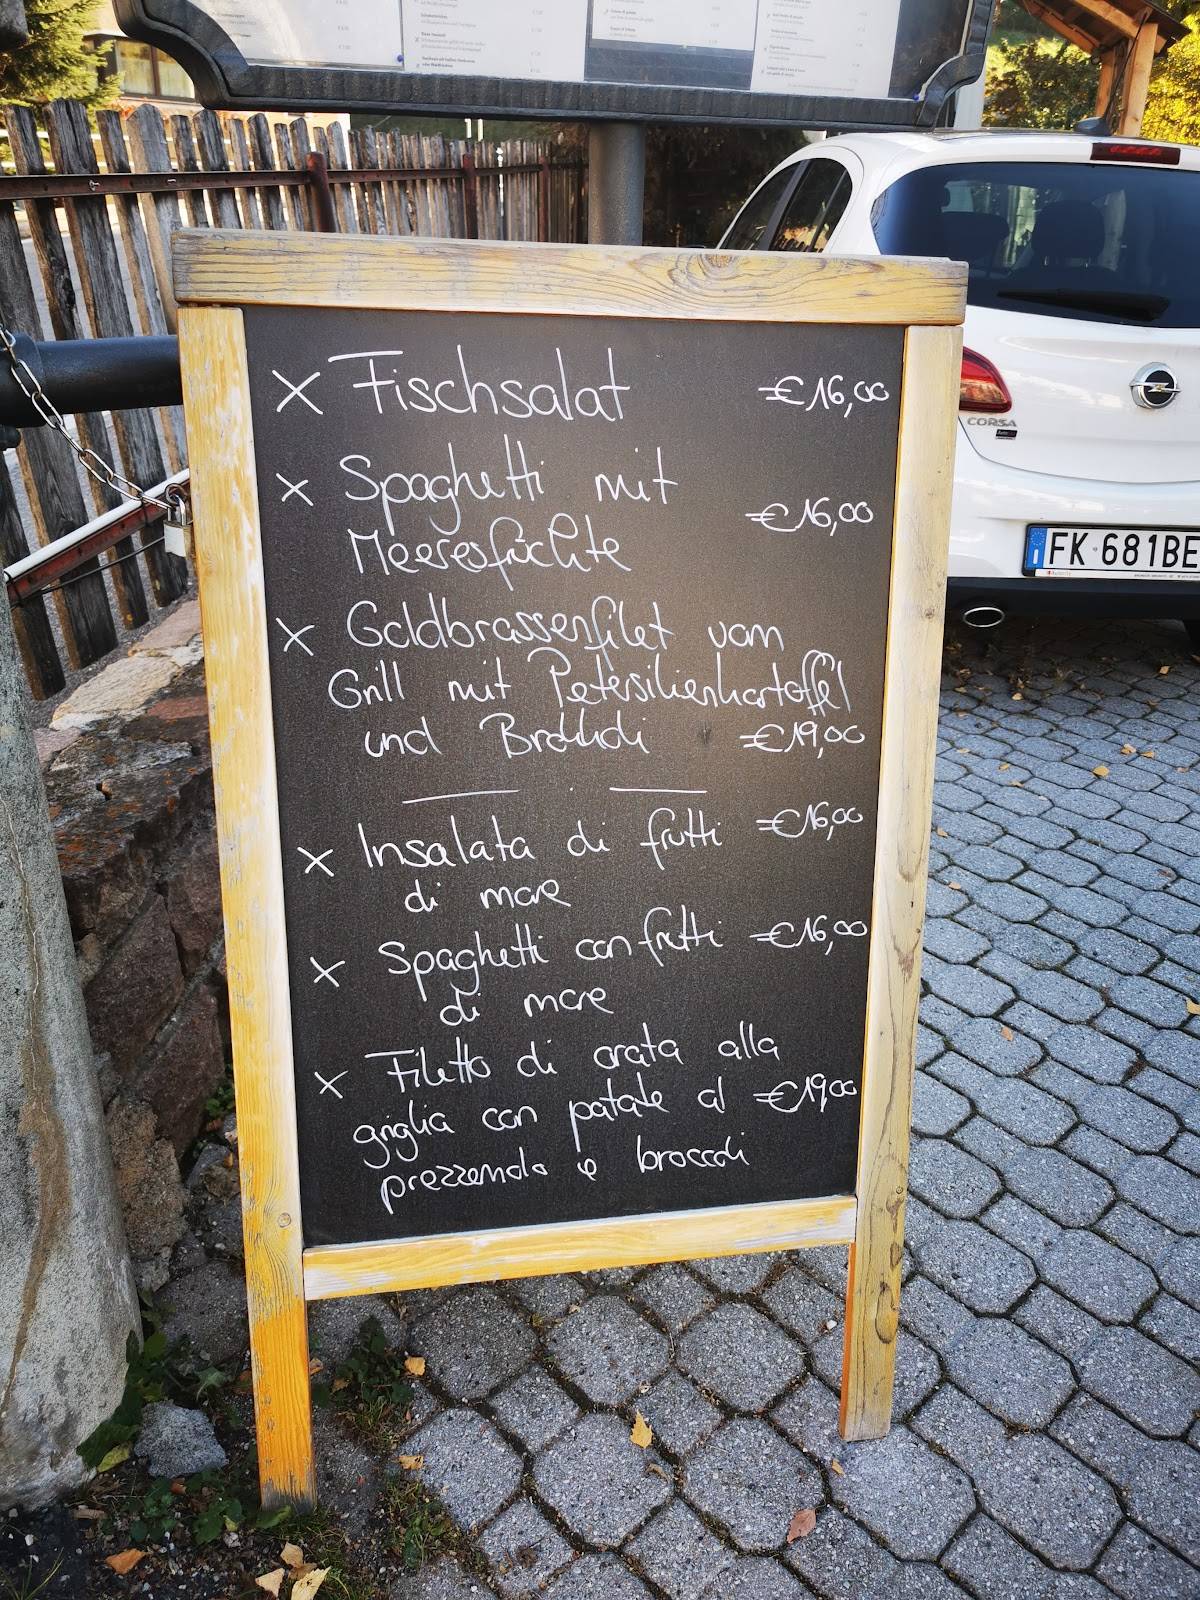 × Fischsalat €16,00
× Spaghetti mit
Meeresfrüchte €16,00
× Goldbrassenfilet vom
Grill mit Petersilienkartoffel
und Brokkoli €19,00
× Insalata di frutti €16,00
di mare
× Spaghetti con frutti €16,00
di mare
× Filetto di orata alla
griglia con patate al €19,00
prezzemolo e broccoli
CORSA
FK 681BE